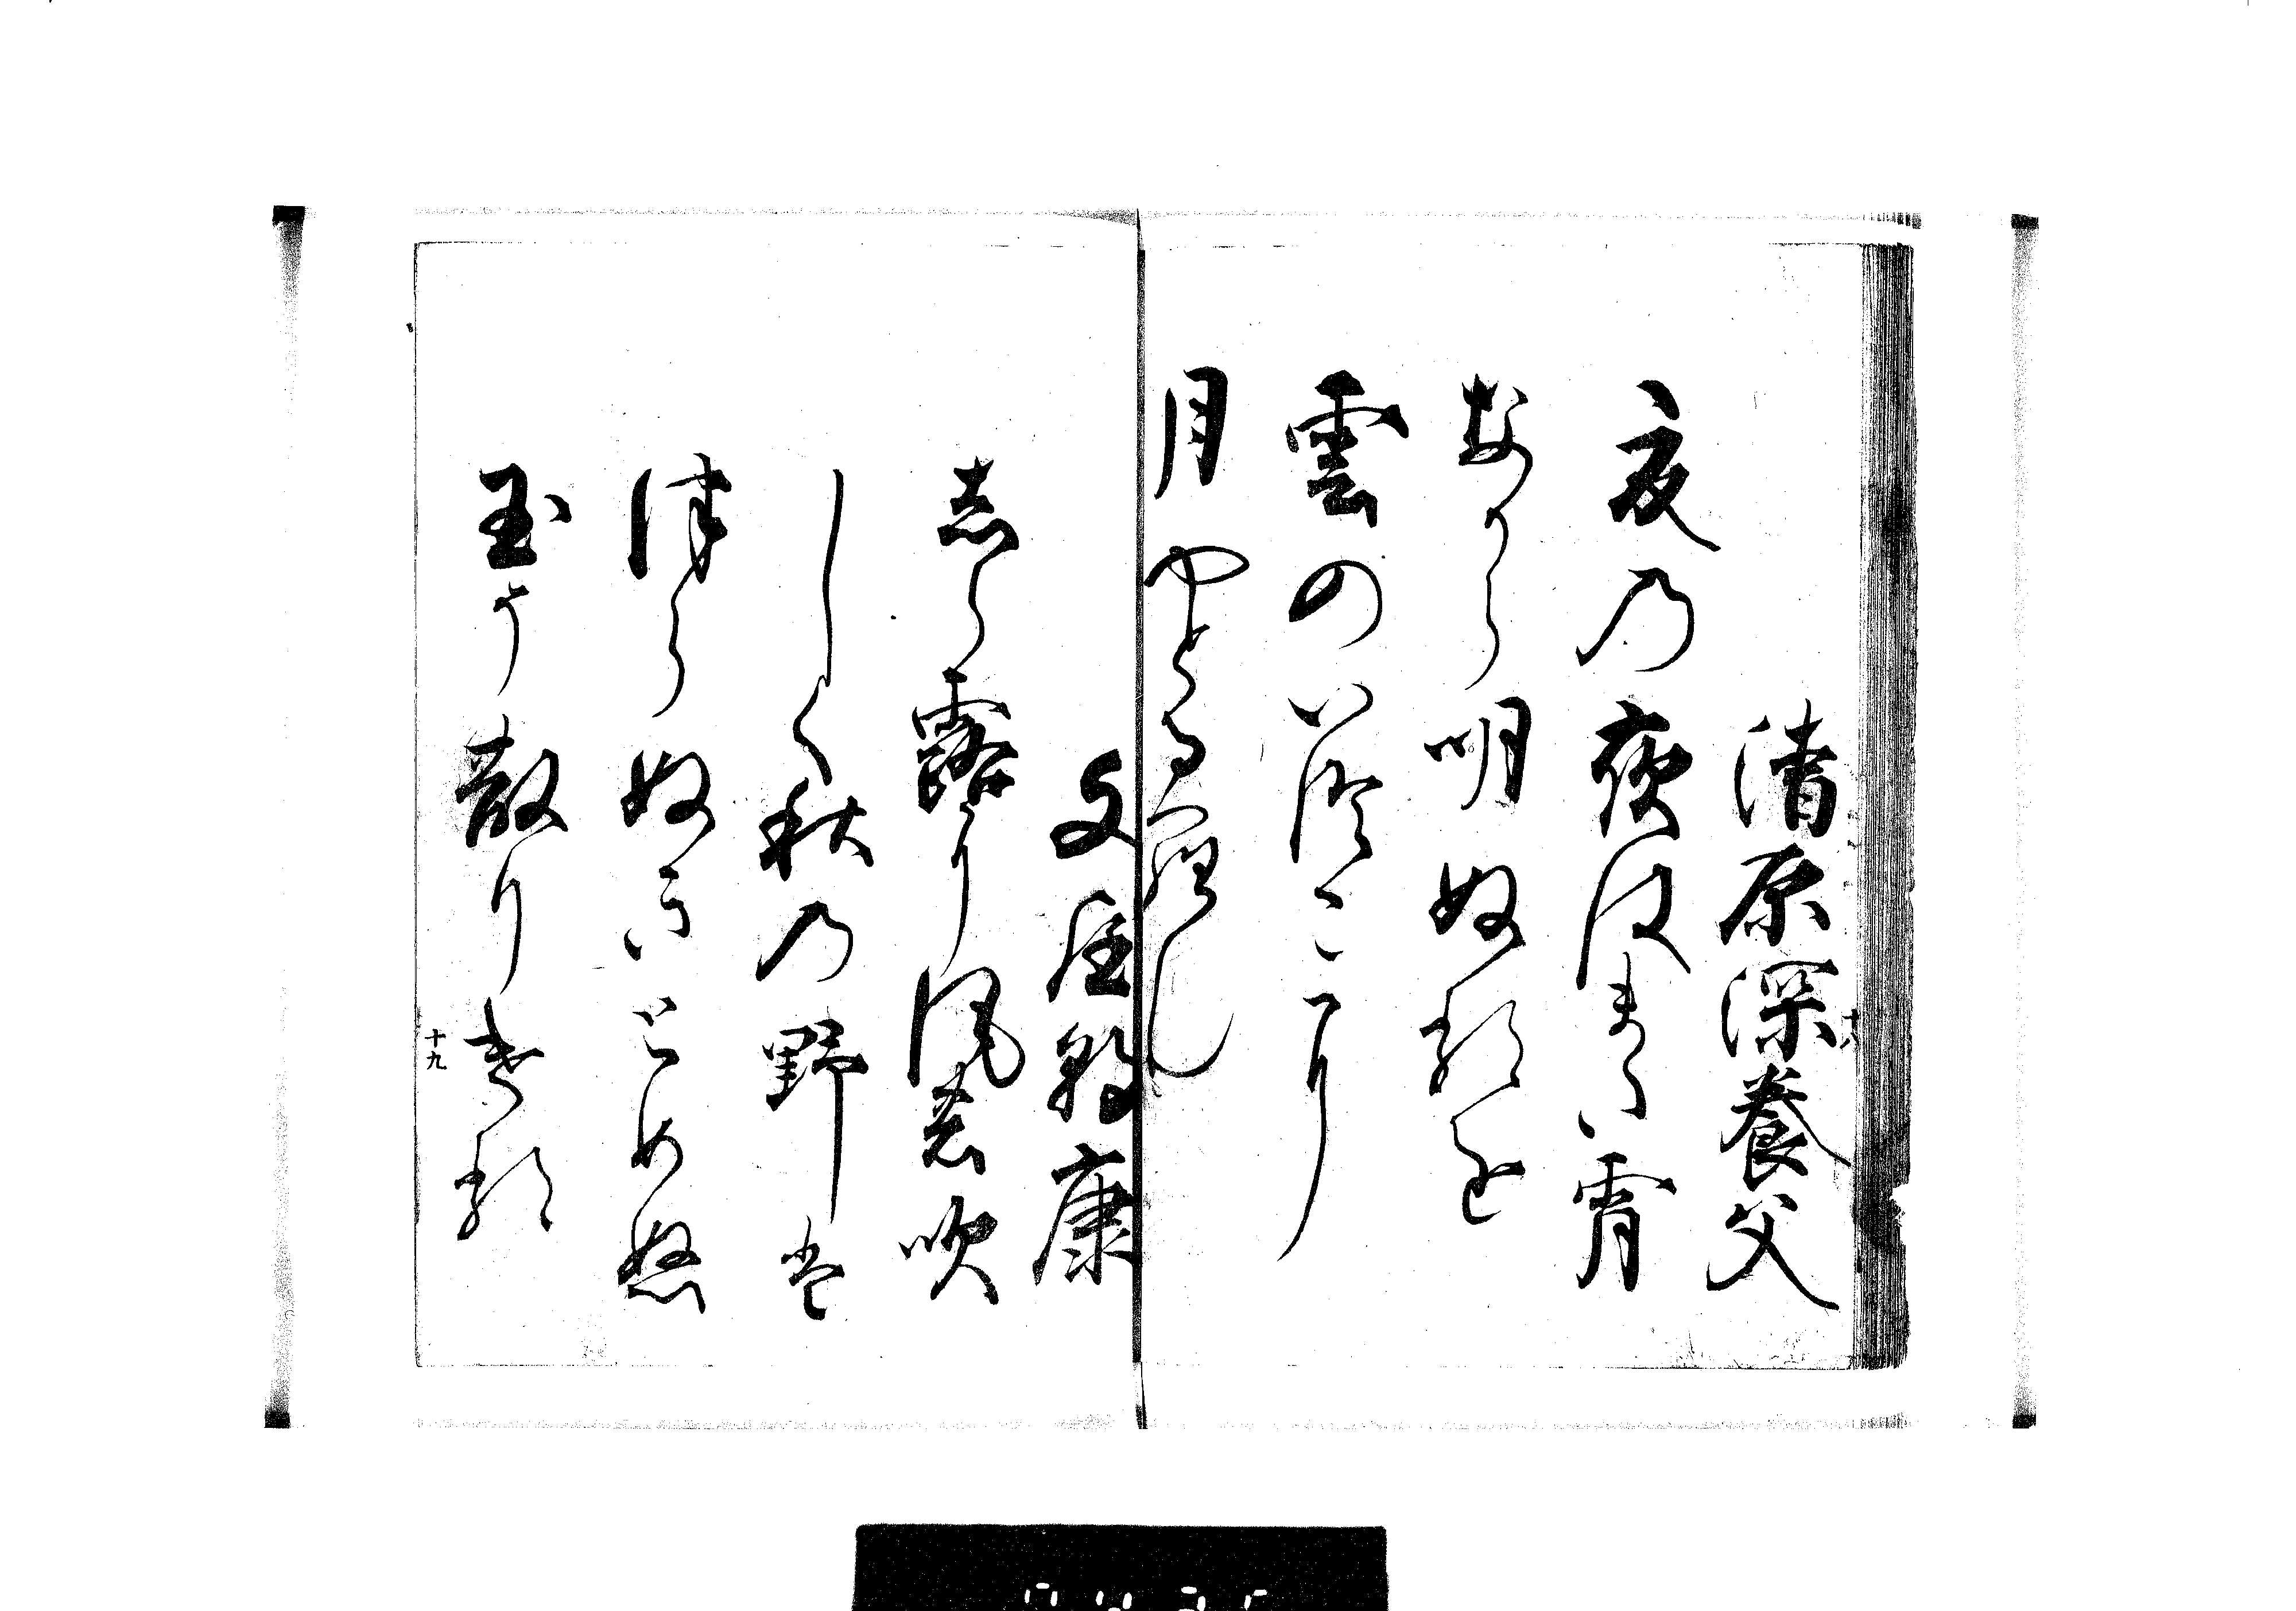 清原深養父
夏乃夜はまた宵
なから明ぬるを
雲のいつこに
月やとるらん
十八
文屋朝康
志ら露に風の吹
しく秋乃野は
つらぬきとめぬ
玉そ散りける
十九